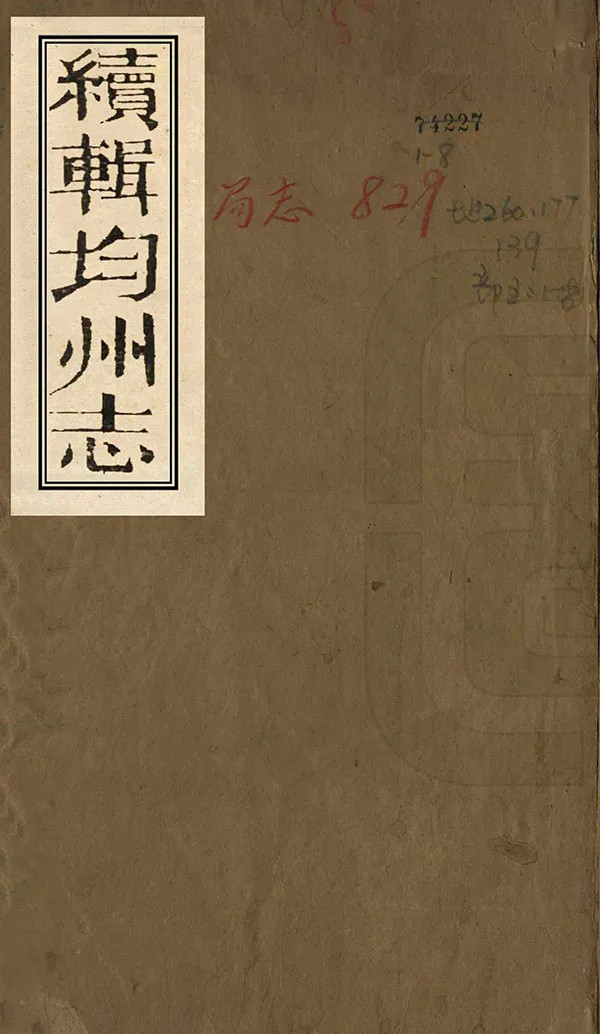 續輯均州志
74227
1-8
局志 829
地260.177
139